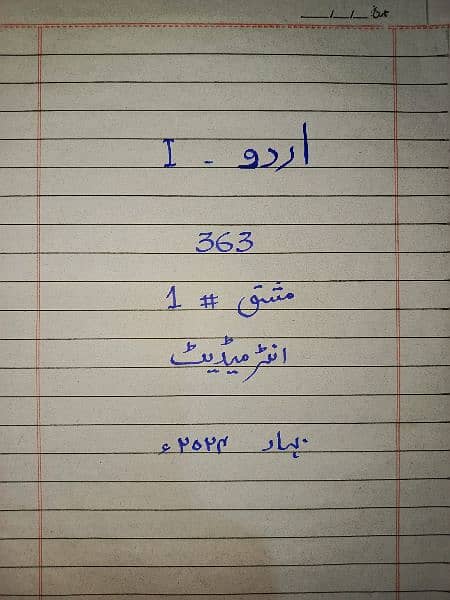 اردو - I
363
مشق # 1
انٹرمیڈیٹ
بہار ۲۰۲۴ء